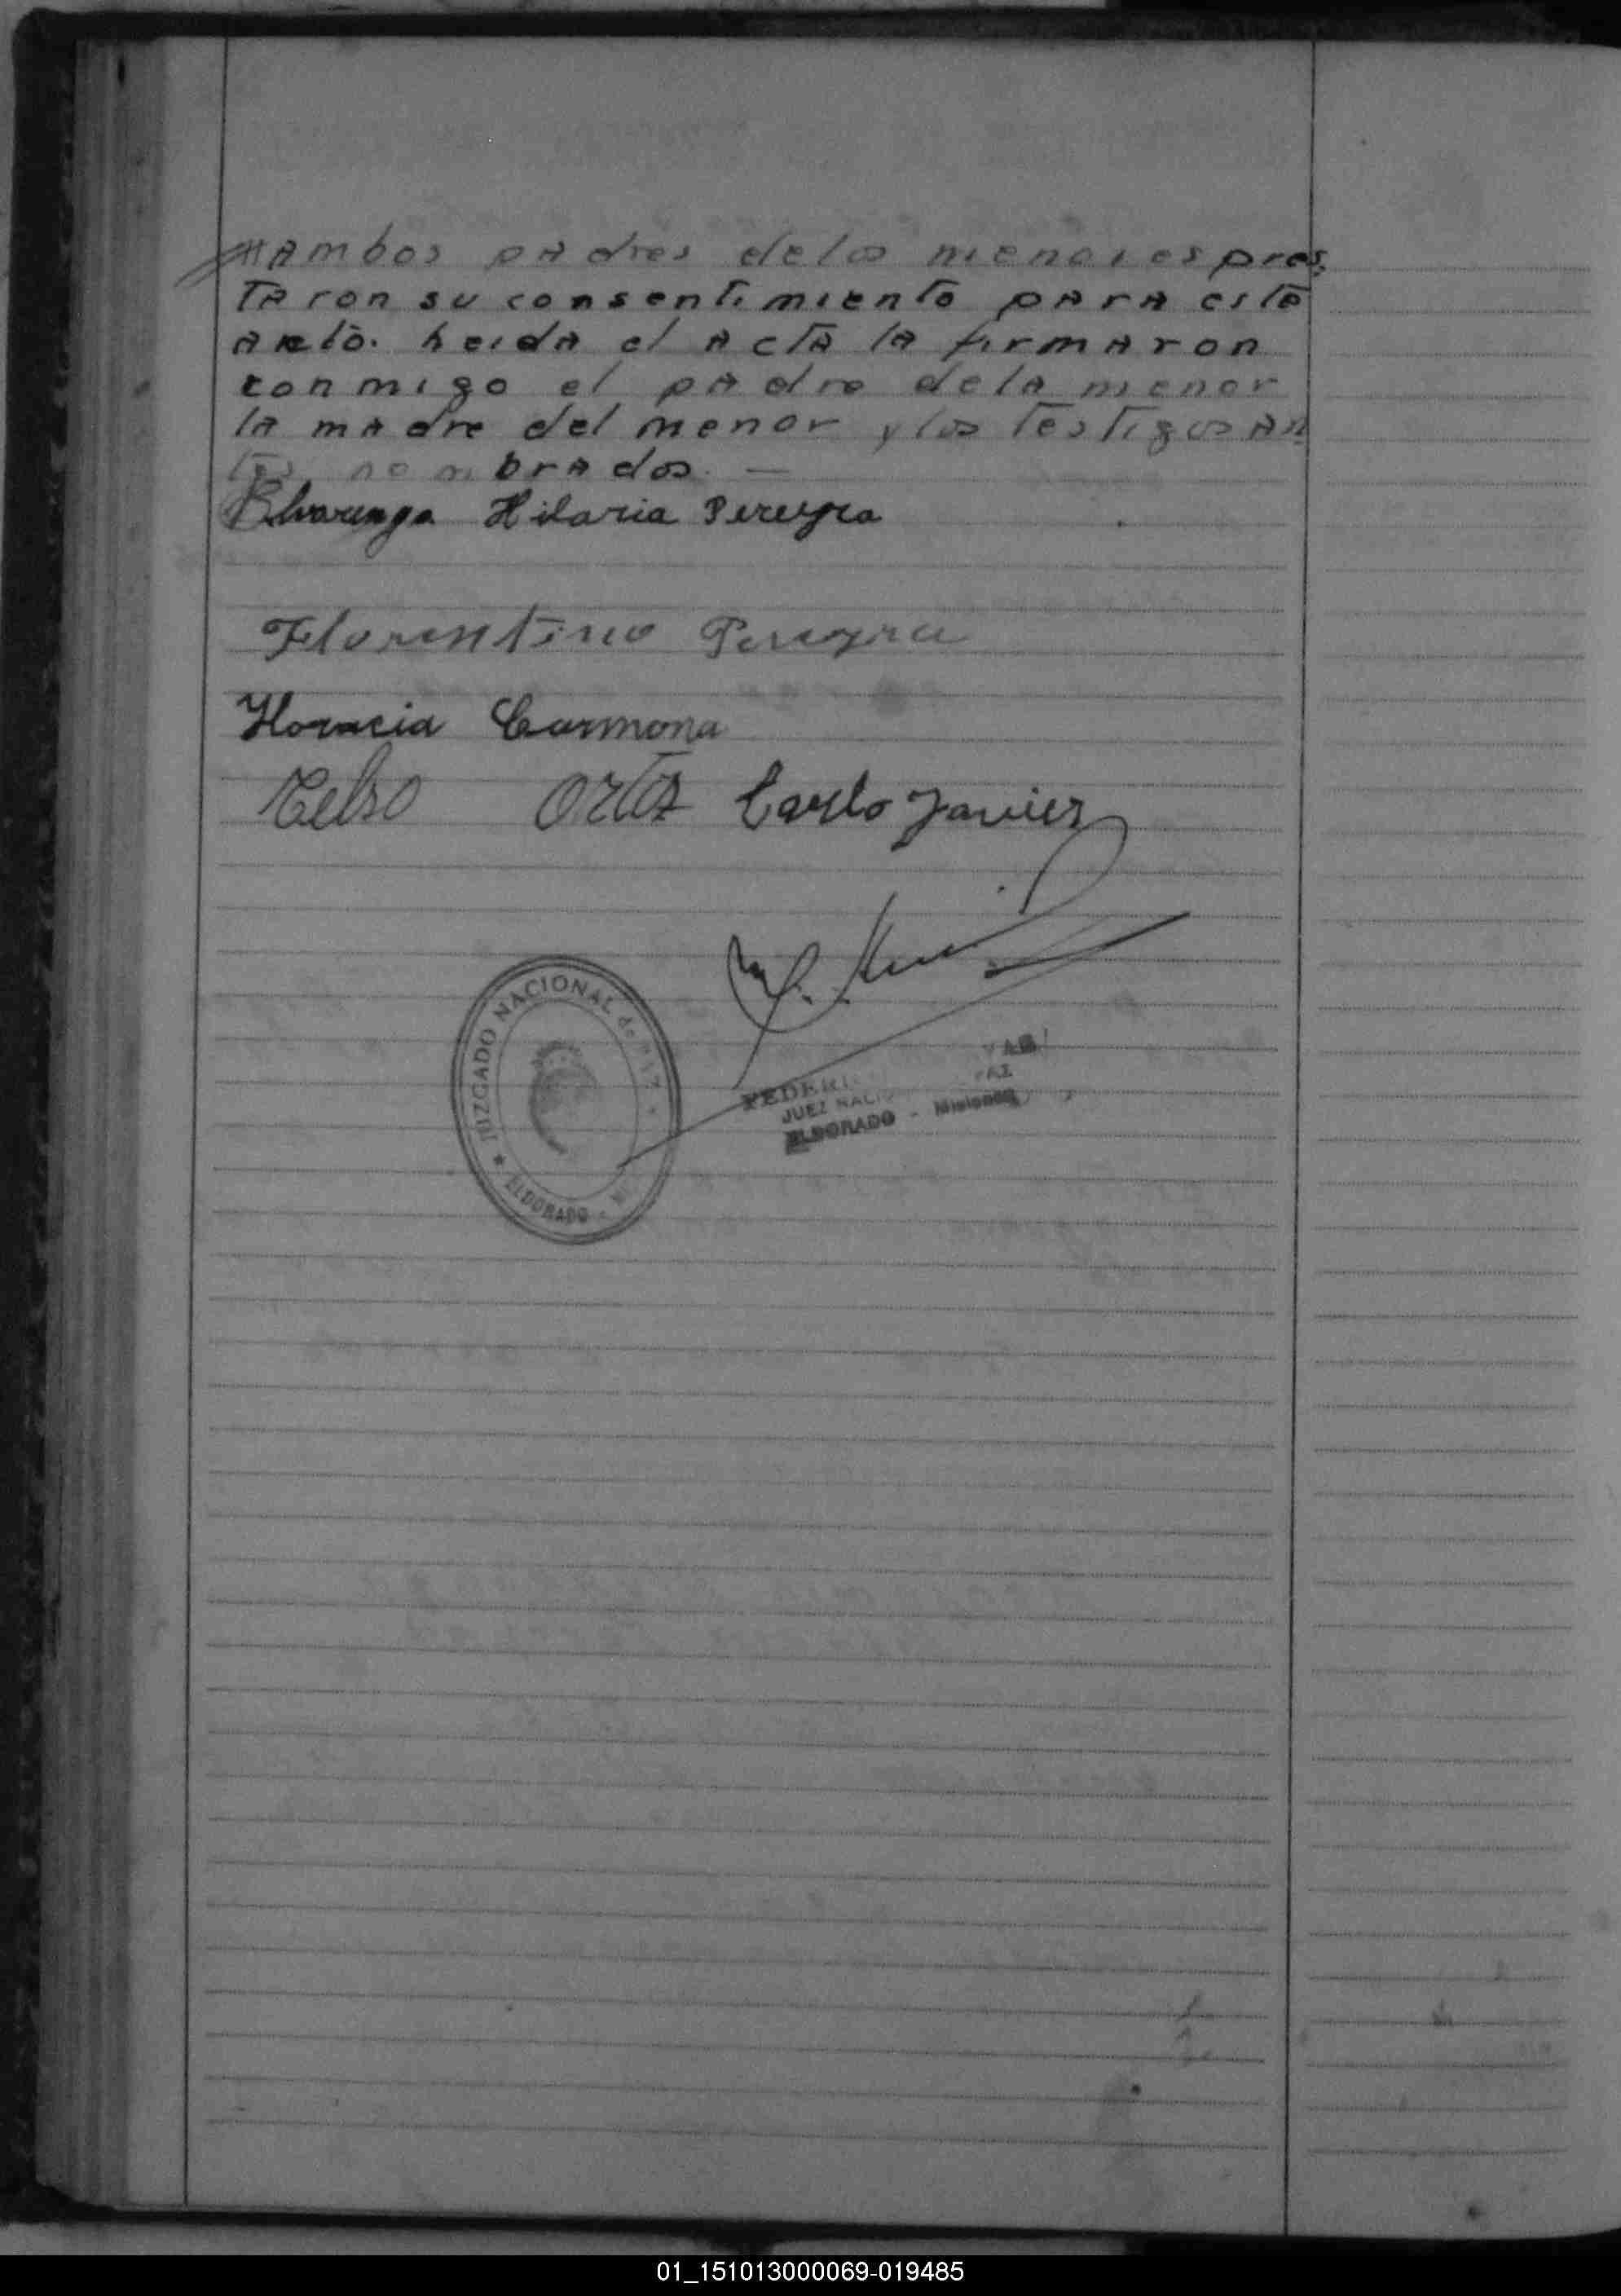 Ambos padres delos menores pres
taron su consentimiento para este
acto. heida el acta la firmaron
conmigo el padre dela menor
la madre del menor y los testigos an
tes nombrados. —
Alvarenga Hilaria Pereyra
Florentino Pereyra
Horacia Carmona
Celso Ortiz Carlo Javier
JUZGADO NACIONAL de PAZ
ELDORADO
JUEZ
ELDORADO - Misiones
01_151013000069-019485